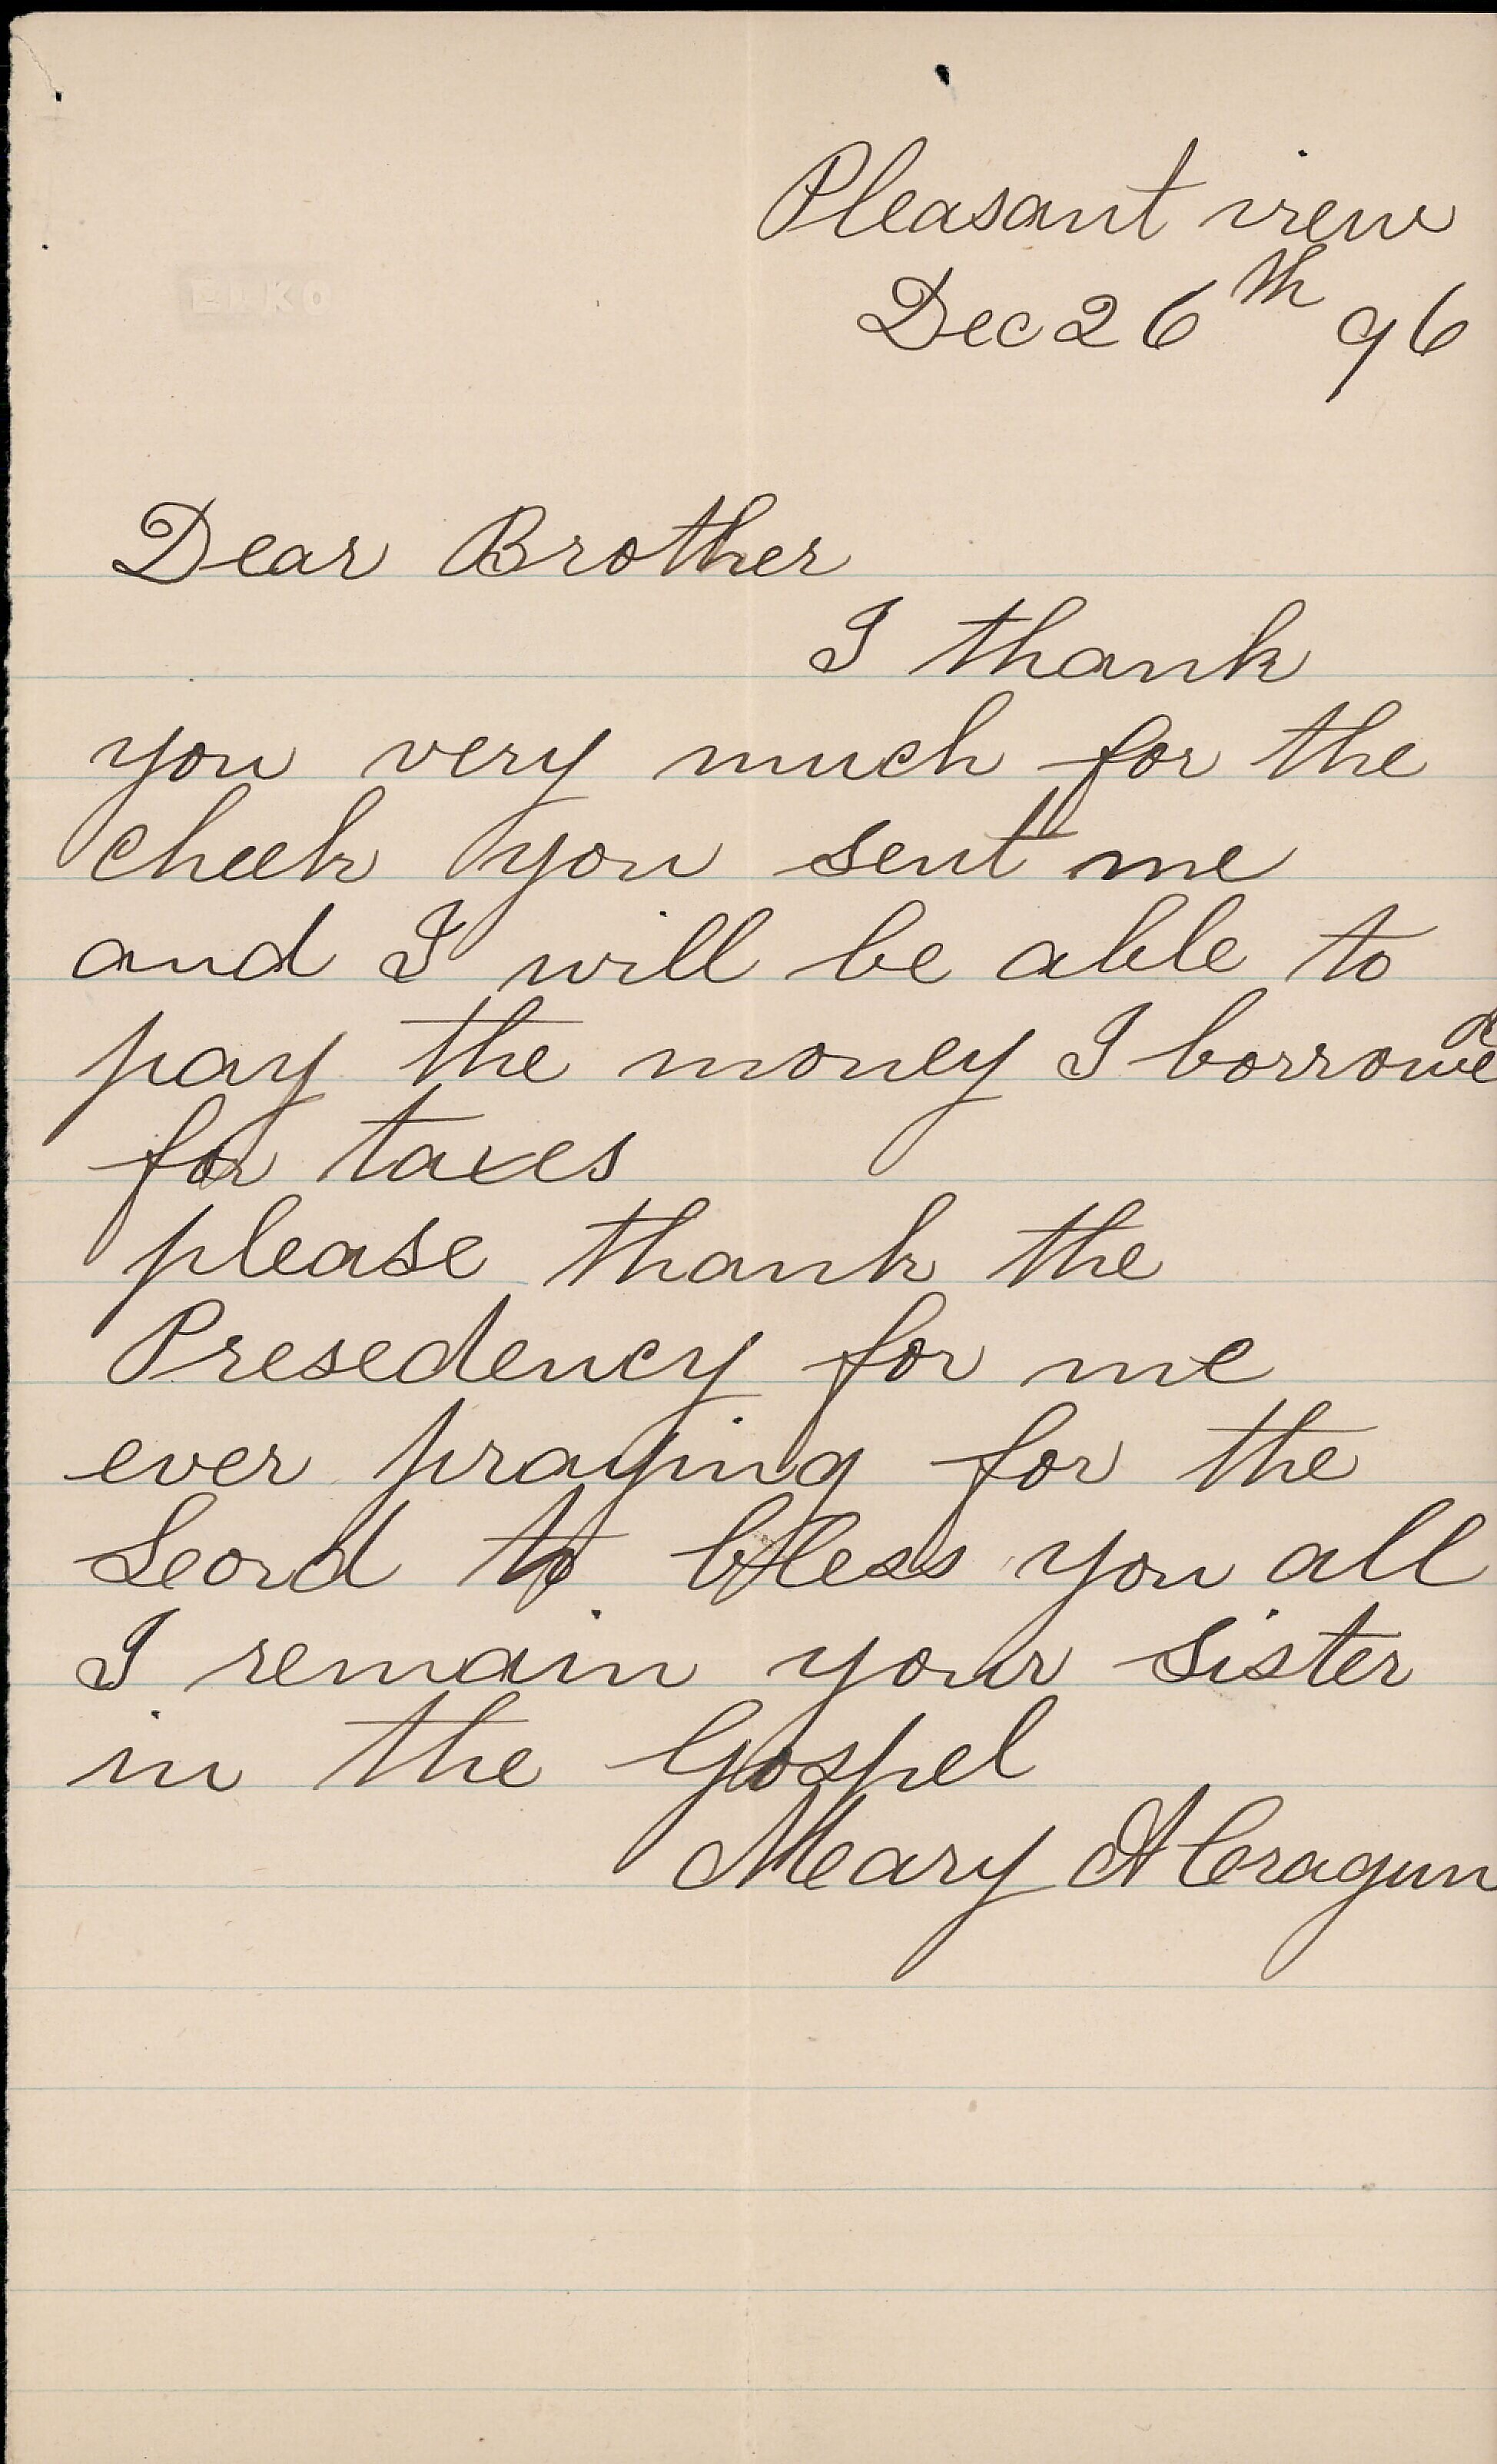 Pleasant view
Dec 26th 96
Dear Brother
I thank
you very much for the
check you sent me
and I will be able to
pay the money I borrowed
for taxes
please thank the
Presedency for me
ever praying for the
Leord to bless you all
I remain your sister
in the Gospel
Meary A Cragun